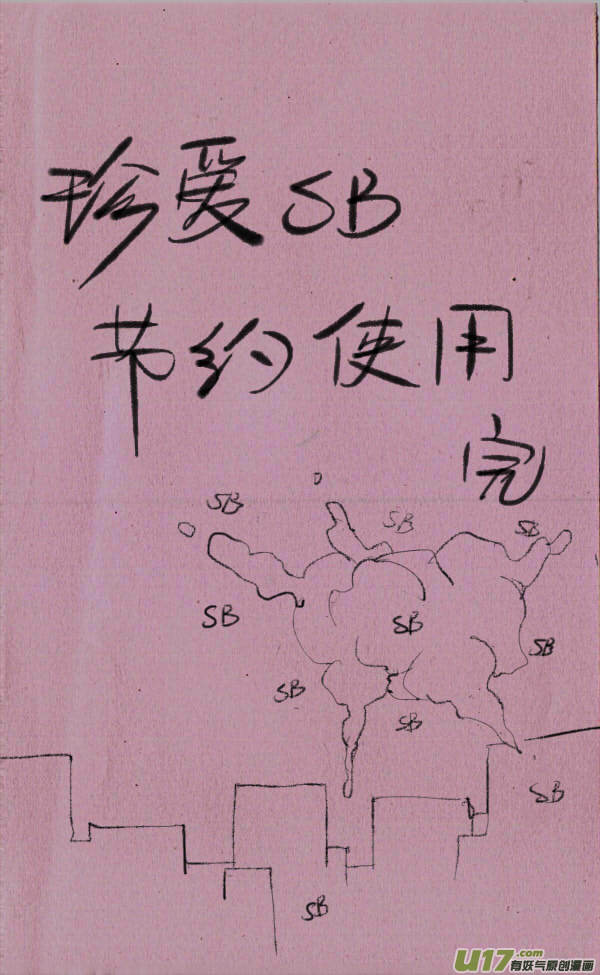 珍爱SB
节约使用
完
SB
SB
SB
SB
SB
SB
SB
SB
SB
SB
U17.com
有妖气原创漫画